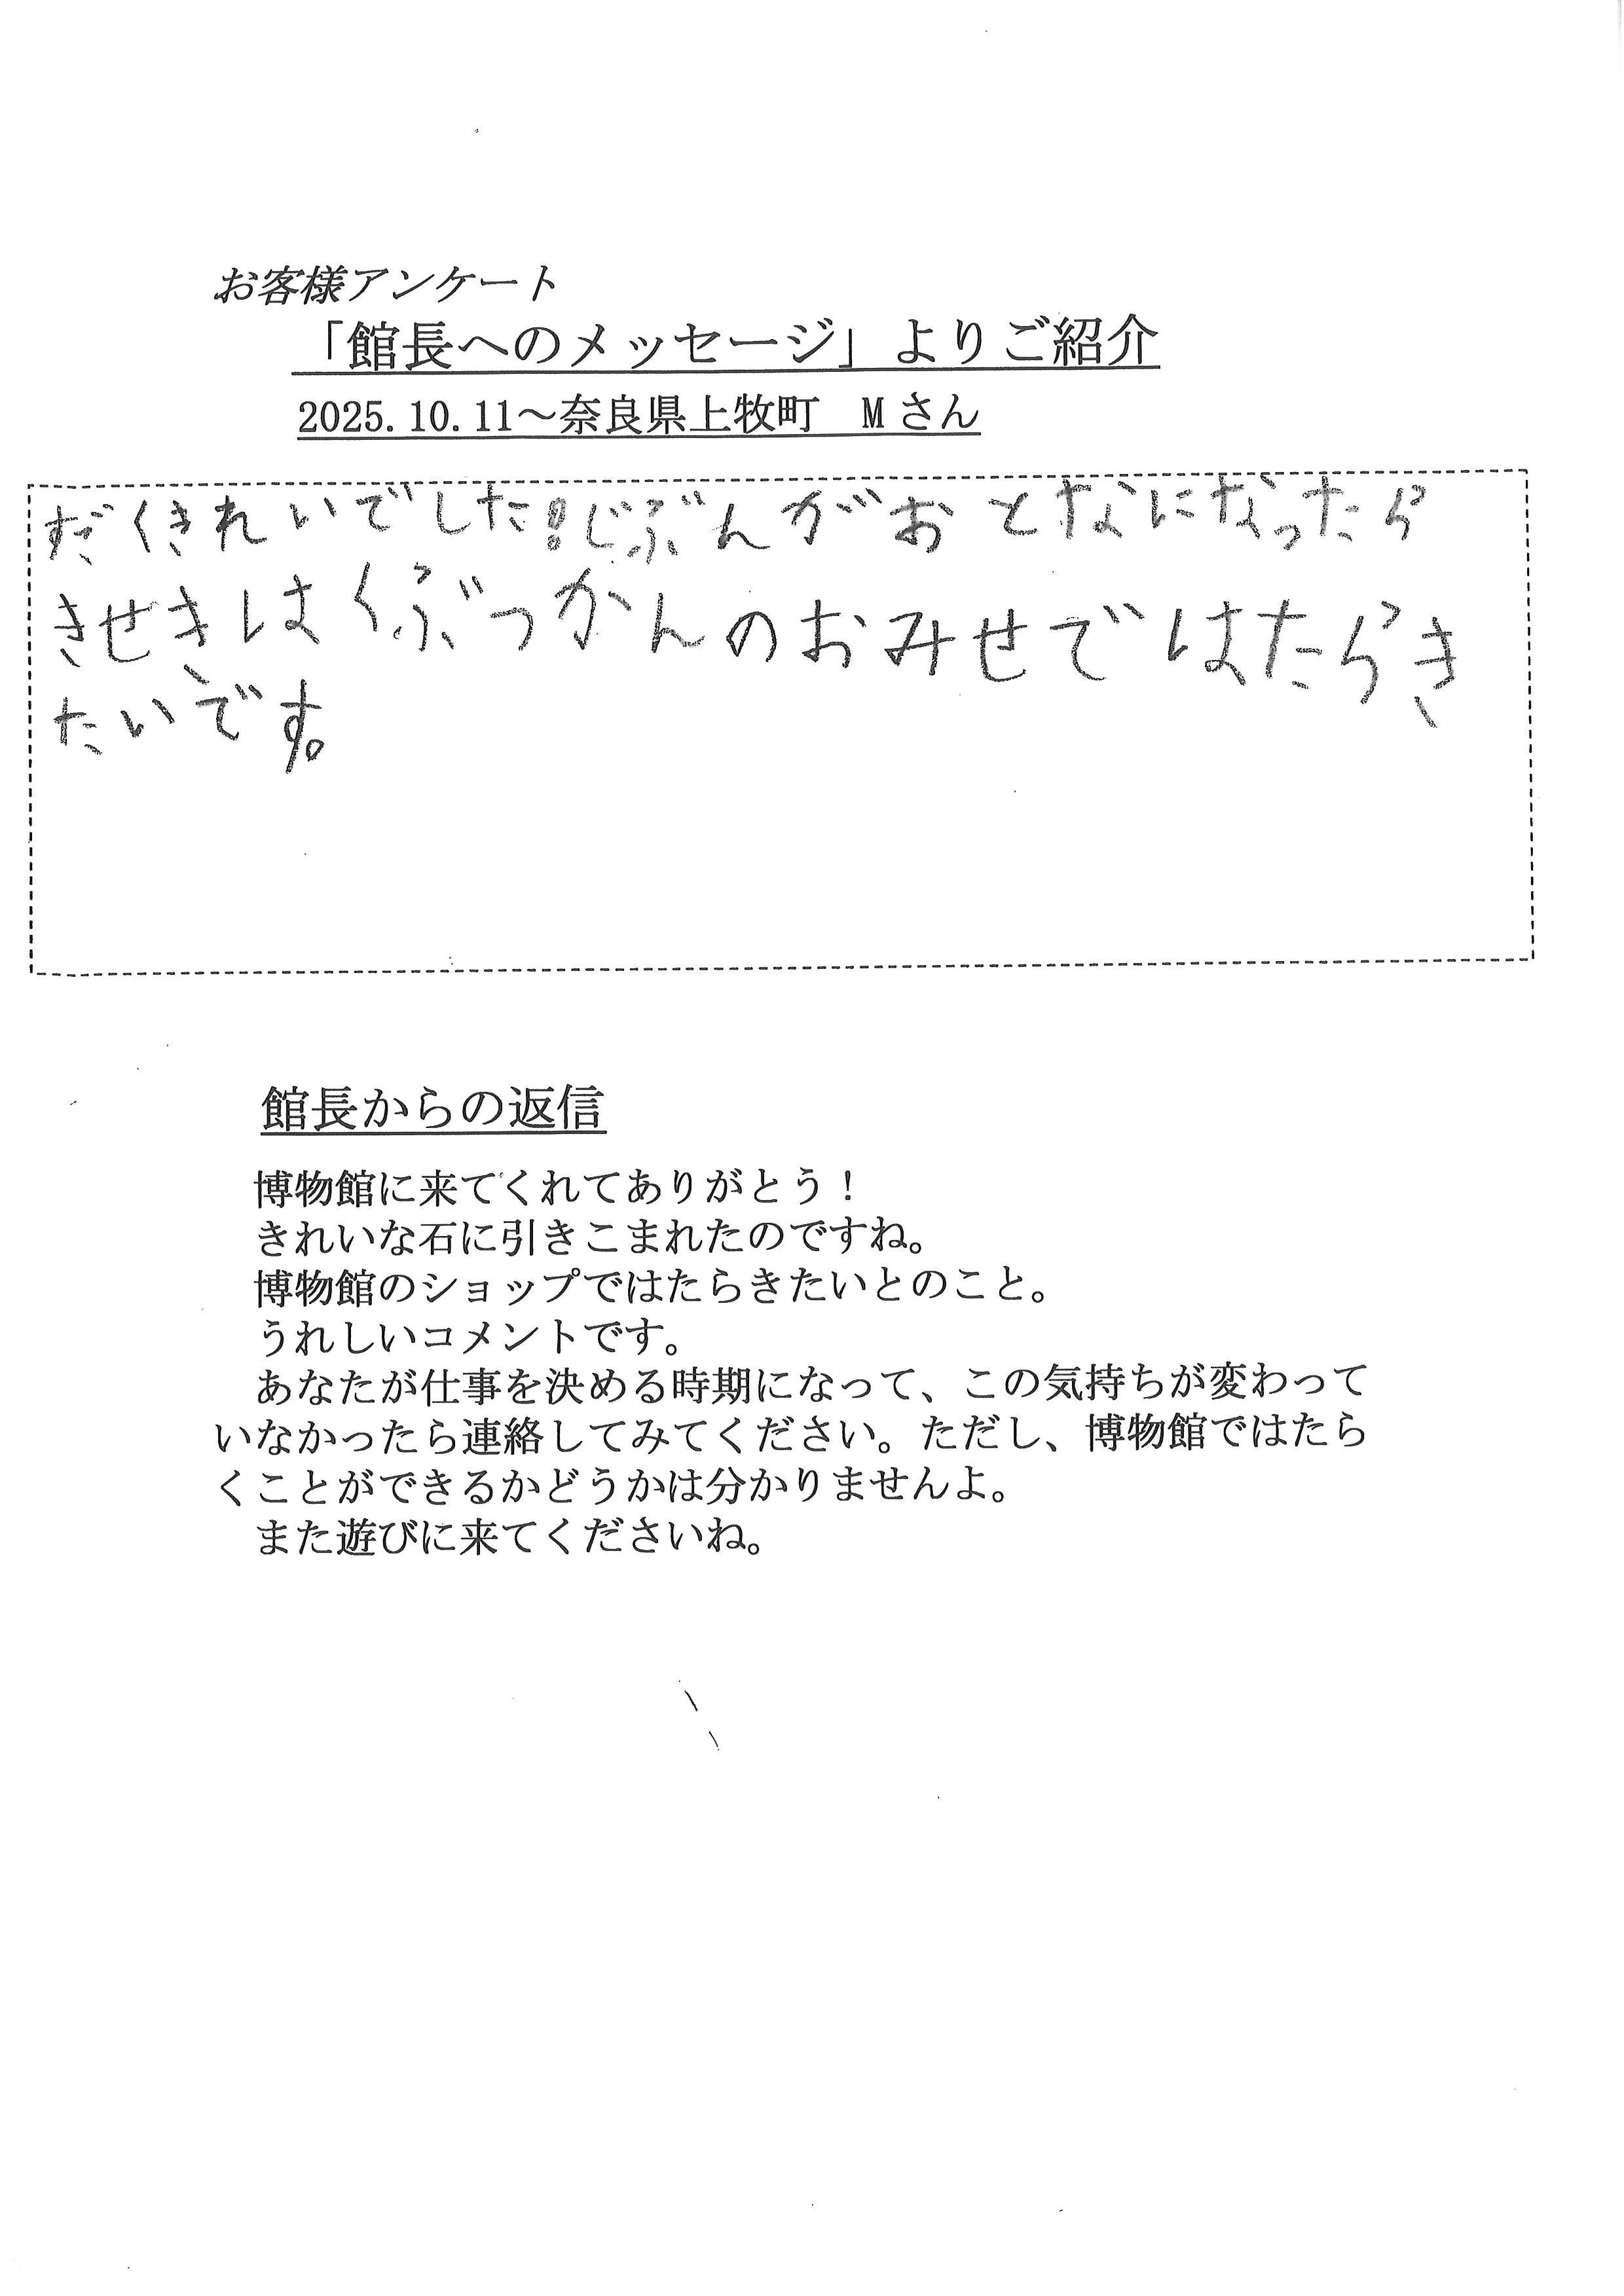 お客様アンケート
「館長へのメッセージ」よりご紹介
2025.10.11～奈良県上牧町　Mさん
だくきれいでした!じぶんがおとなになったら
きせきはくぶつかんのおみせではたらき
たいです。
館長からの返信
博物館に来てくれてありがとう！
きれいな石に引きこまれたのですね。
博物館のショップではたらきたいとのこと。
うれしいコメントです。
あなたが仕事を決める時期になって、この気持ちが変わって
いなかったら連絡してみてください。ただし、博物館ではたら
くことができるかどうかは分かりませんよ。
また遊びに来てくださいね。